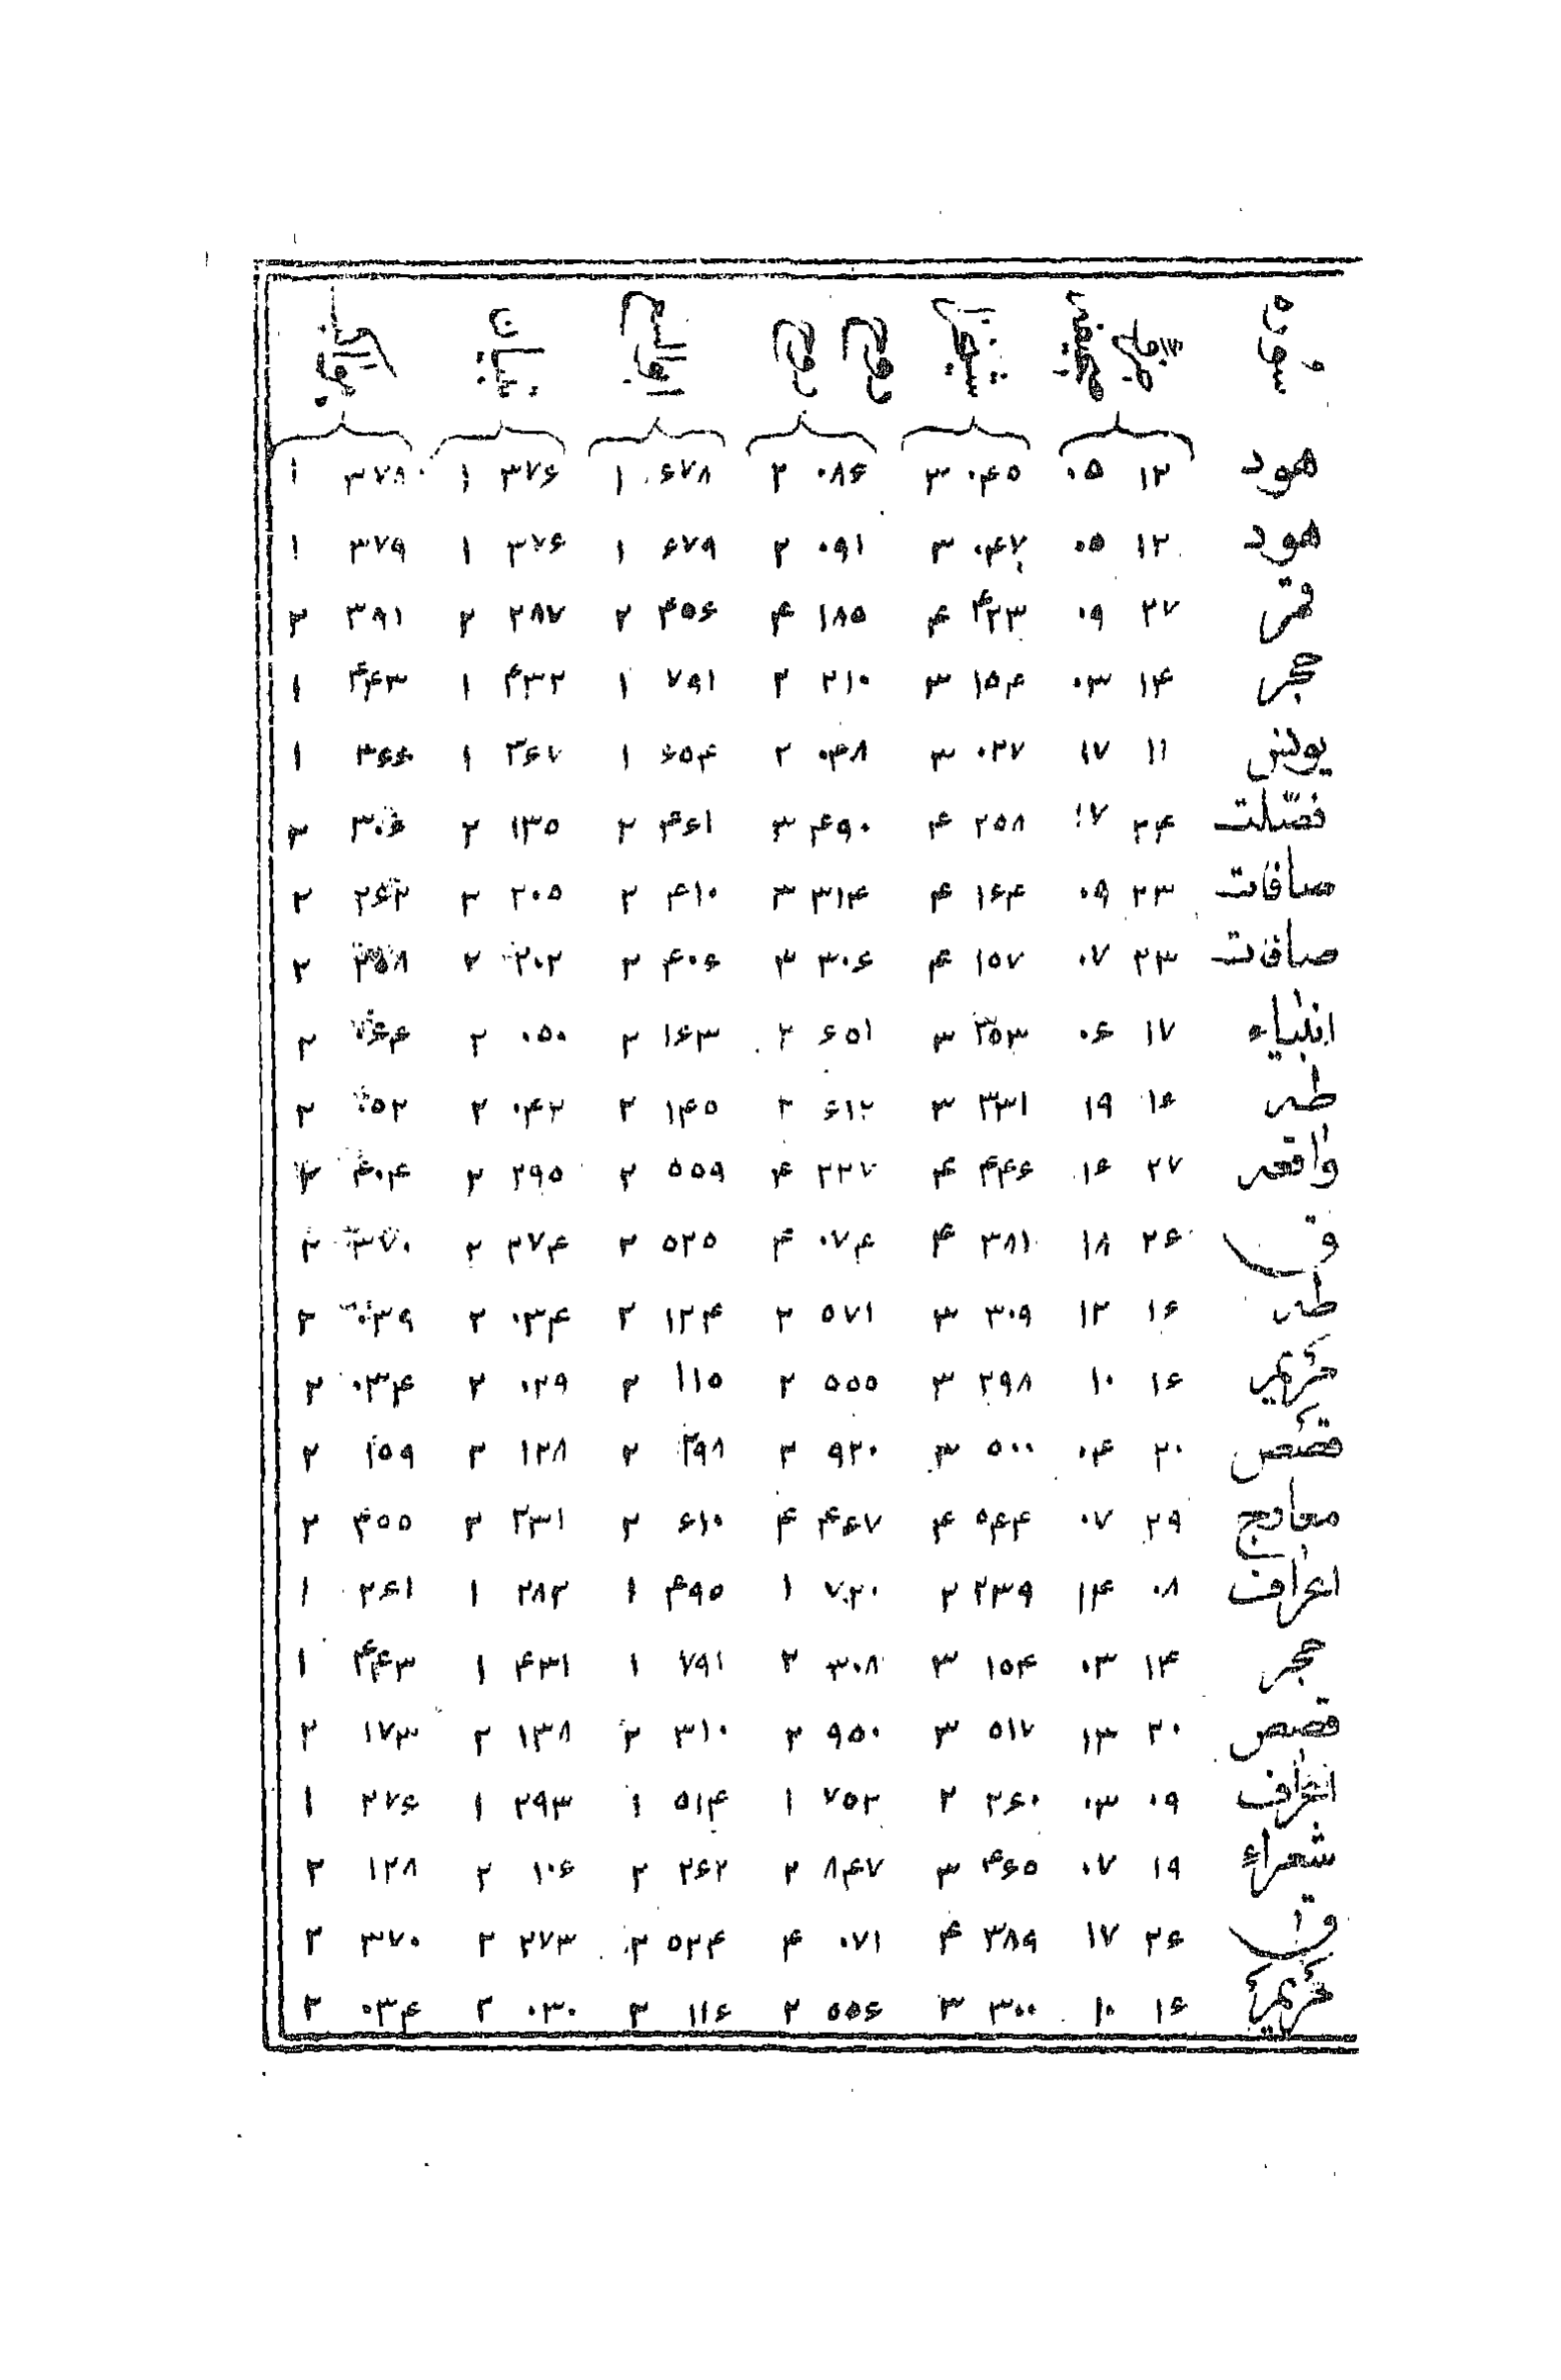 سوره
هود ۱۲ ۰۵ ۰۴۵ ۳ ۰۸۶ ۲ ۶۷۸ ۱ ۳۷۶ ۱ ۳۷۸ ۱
هود ۱۲ ۰۵ ۰۴۷ ۳ ۰۹۱ ۲ ۶۷۹ ۱ ۳۷۶ ۱ ۳۷۹ ۱
قمر ۲۷ ۰۹ ۴۲۳ ۴ ۱۸۵ ۴ ۴۵۶ ۲ ۲۸۷ ۲ ۳۹۱ ۲
حجر ۱۴ ۰۳ ۱۵۴ ۳ ۲۱۰ ۲ ۷۹۱ ۱ ۴۳۲ ۱ ۴۴۳ ۱
یونس ۱۱ ۱۷ ۰۲۷ ۳ ۰۴۸ ۲ ۶۵۴ ۱ ۳۶۷ ۱ ۳۶۶ ۱
فصّلت ۲۴ ۱۷ ۲۵۸ ۴ ۴۹۰ ۳ ۴۶۱ ۲ ۱۳۵ ۲ ۳۰۶ ۲
صافات ۲۳ ۰۹ ۱۶۴ ۴ ۳۱۴ ۳ ۴۱۰ ۲ ۲۰۵ ۲ ۲۶۲ ۲
صافات ۲۳ ۰۷ ۱۵۷ ۴ ۳۰۶ ۳ ۴۰۶ ۲ ۲۰۲ ۲ ۲۵۸ ۲
انبیاء ۱۷ ۰۶ ۳۵۳ ۳ ۶۵۱ ۲ ۱۶۳ ۲ ۰۵۰ ۲ ۲
طه ۱۶ ۱۹ ۳۳۱ ۳ ۶۱۲ ۲ ۱۴۵ ۲ ۰۴۲ ۲ ۰۵۲ ۲
واقعه ۲۷ ۱۶ ۴۴۶ ۴ ۲۲۷ ۴ ۵۵۹ ۲ ۲۹۵ ۲ ۴۰۴ ۲
ق ۲۶ ۱۸ ۳۸۱ ۴ ۰۷۴ ۴ ۵۲۵ ۲ ۲۷۴ ۲ ۳۷۰ ۲
طه ۱۶ ۱۲ ۳۰۹ ۳ ۵۷۱ ۲ ۱۲۴ ۲ ۰۳۴ ۲ ۰۳۹ ۲
مریم ۱۶ ۱۰ ۲۹۸ ۳ ۵۵۵ ۲ ۱۱۵ ۲ ۰۲۹ ۲ ۰۳۴ ۲
قصص ۲۰ ۰۴ ۵۰۰ ۳ ۹۲۰ ۲ ۲۹۸ ۲ ۱۲۸ ۲ ۱۵۹ ۲
معارج ۲۹ ۰۷ ۵۴۴ ۴ ۴۶۷ ۴ ۶۱۰ ۲ ۳۳۱ ۲ ۴۵۵ ۲
اعراف ۰۸ ۱۴ ۲۳۹ ۲ ۷۲۰ ۱ ۴۹۵ ۱ ۲۸۲ ۱ ۲۶۱ ۱
حجر ۱۴ ۰۳ ۱۵۴ ۳ ۳۰۸ ۲ ۷۹۱ ۱ ۴۳۱ ۱ ۴۴۳ ۱
قصص ۲۰ ۱۳ ۵۱۷ ۳ ۹۵۰ ۲ ۳۱۰ ۲ ۱۳۸ ۲ ۱۷۳ ۲
اعراف ۰۹ ۰۳ ۲۶۰ ۲ ۷۵۲ ۱ ۵۱۴ ۱ ۲۹۳ ۱ ۲۷۶ ۱
شعراء ۱۹ ۰۷ ۴۶۵ ۳ ۸۴۷ ۲ ۲۶۲ ۲ ۱۰۶ ۲ ۱۲۸ ۲
ق ۲۶ ۱۷ ۳۸۹ ۴ ۰۷۱ ۴ ۵۲۴ ۲ ۲۷۳ ۲ ۳۷۰ ۲
مریم ۱۶ ۱۰ ۳۰۰ ۳ ۵۵۶ ۲ ۱۱۶ ۲ ۰۳۰ ۲ ۰۳۴ ۲